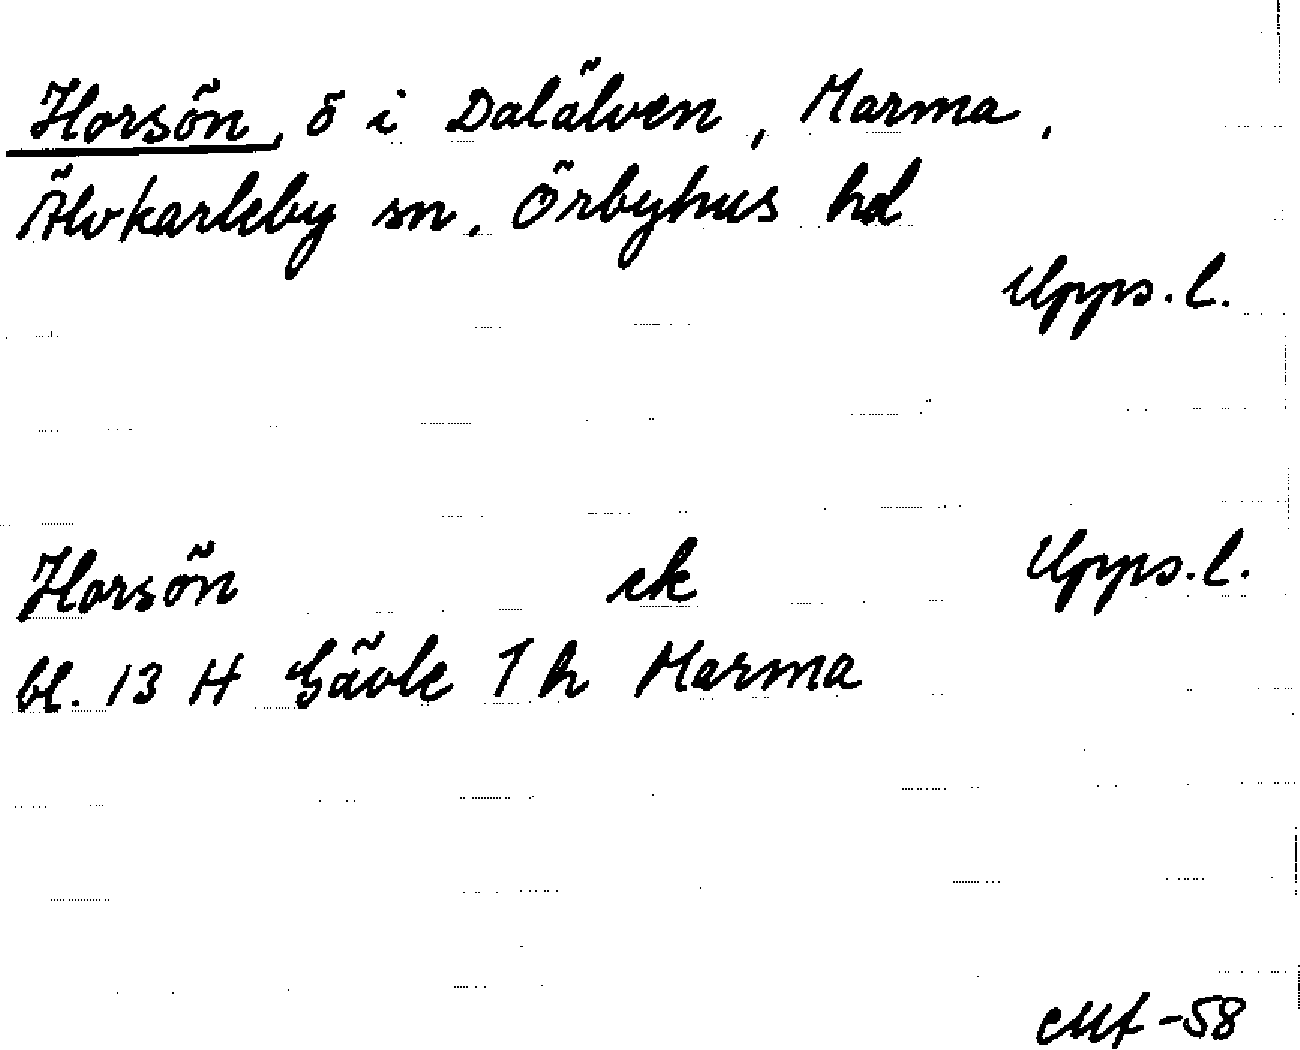 Horsön, ö i Dalälven, Marma,
Älvkarleby sn, Örbyhus hd
Upps. l.
Horsön ek Upps. l.
bl. 13 H Gävle 1 h Marma
-58